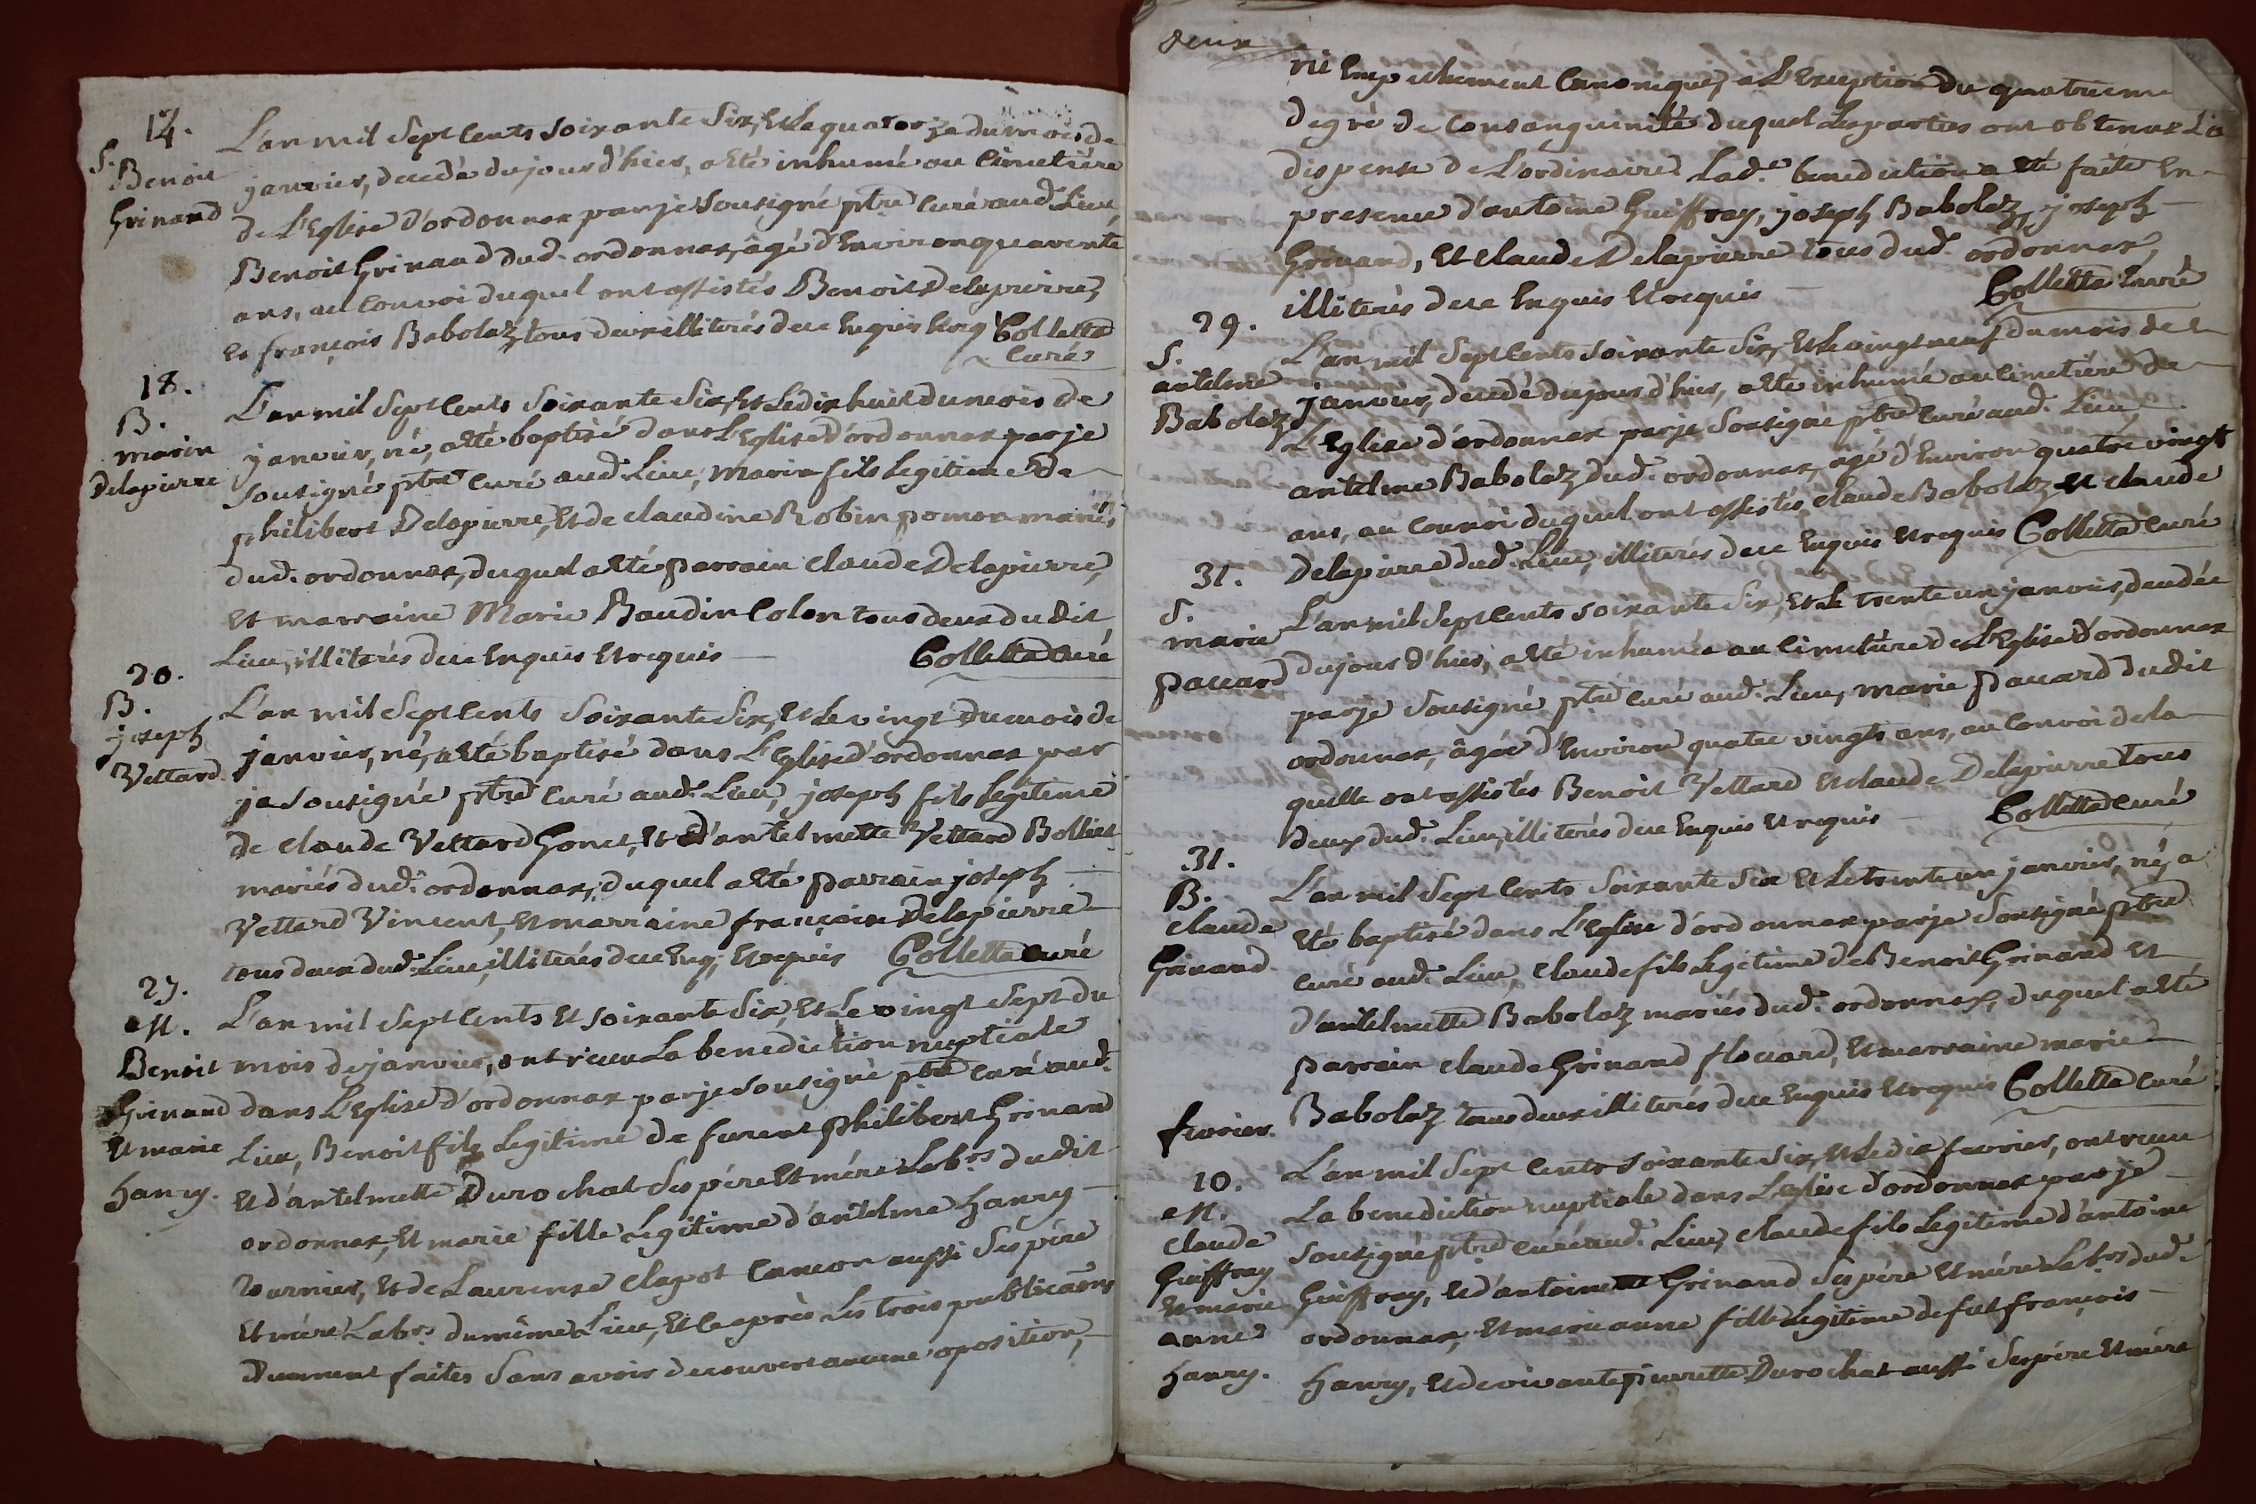 14.
S.
Benoit
Grinand
L'an mil sept cents soixante six, et le quatorze du mois de
janvier, decedé du jour d'hier, a êté inhumé au cimetière
de L'Eglise d'ordonnax par je sousigné ptre curé aud. Lieu,
Benoit Grinand dud. ordonnax, âgé d'Environ quarente
ans, au convoi duquel ont assistés Benoit Delapierre,
et françois Babolaz, tous deux illiterés de ce Enquis et req. Colletta
curé
18.
B.
marin
Delapierre
L'an mil sept cents soixante six, et le dix huit du mois de
janvier, né, a êté baptisé dans L'Eglise d'ordonnax par je
sousigné ptre curé aud. Lieu, marin fils legitime de
philibert Delapierre, et de claudine Robin pomon mariés
dud. ordonnax, duquel a êté parrain claude Delapierre,
et marraine Marie Baudin Colon tous deux dudit
Lieu, illiterés de ce Enquis et requis Colletta curé
20.
B.
joseph
Vettard
L'an mil sept cents soixante six, et le vingt du mois de
janvier, né, a êté baptisé dans L'Eglise d'ordonnax par
je sousigné ptre curé aud. Lieu, joseph fils legitime
de claude Vettard Gonet, et d'antelmette Vettard Bolliet
mariés dud. ordonnax, duquel a êté parrain joseph
Vettard Vincent, et marraine françoise Delapierre
tous deux dud. Lieu, illiterés de ce Enq. et requis Colletta curé
27.
M.
Benoit
Grinand
et marie
hanry.
L'an mil sept cents et soixante six, et le vingt sept du
mois de janvier, ont reçeu la benediction nuptiale
dans L'Eglise d'ordonnax par je sousigné ptre curé aud.
Lieu, Benoit fils legitime de furent philibert Grinand
et d'antelmette Durochat ses père et mére Labrs dudit
ordonnax, et marie fille legitime d'antelme hanry
tournier, et de Laurense clapot cancon aussi ses père
et mére Labrs du même Lieu, et ce après les trois publicaons
duement faites sans avoir decouvert aucune oposition,
deux
ni Empechement canonique, a L'Exception du quatrieme
degrè de consanguinité duquel les parties ont obtenus La
dispense de L'ordinaire. Lad. benediction a êté faite En
presence d'antoine Guiffray, joseph Babolaz, joseph
Grinand, et claude Delapierre tous dud. ordonnax,
illiterés de ce Enquis et requis Colletta curé
29.
S.
antelme
Babolaz
L'an mil sept cents soixante six, et le vingt neuf du mois de
janvier, decedé du jour d'hier, a êté inhumé au cimetière de
L'Eglise d'ordonnax par je sousigné ptre curé aud. Lieu,
antelme Babolaz dud. ordonnax, agé d'Environ quatre vingt
ans, au convoi duquel ont assistés claude Babolaz et claude
Delapierre dud. Lieu, illiterés de ce Enquis et requis Colletta curé
31.
S.
marie
pauard
L'an mil sept cents soixante six, et le trente un janvier, decedée
du jour d'hier, a êté inhumée au cimetière de L'Eglise d'ordonnax
par je sousigné ptre curé aud. Lieu, marie pauard dudit
ordonnax, âgée d'Environ quatre vingts ans, au convoi de la
quelle ont assistés Benoit Vettard et claude Delapierre tous
deux dud. Lieu, illiterés de ce Enquis et requis Colletta curé
31.
B.
claude
Grinand
L'an mil sept cents soixante six et le trente un janvier, né, a
êté baptisé dans L'Eglise d'ordonnax par je sousigné ptre
curé aud. Lieu, claude fils legitime de Benoit Grinand et
d'antelmette Babolaz mariés dud. ordonnax, duquel a êté
parrain claude Grinand flouard, et marraine marie
Babolaz tous deux illiterés de ce Enquis et requis Colletta curé
fevrier.
10.
M.
claude
Guiffray
et marie
anne
hanry.
L'an mil sept cents soixante six, et le dix fevrier, ont reçeu
La benediction nuptiale dans L'eglise d'ordonnax par je
sousigné ptre curé aud. Lieu, claude fils legitime d'antoine
Guiffray, et d'antoinette Grinand ses père et mére Labrs dud.
ordonnax, et marie anne fille legitime de fut françois
hanry, et de vivante pierrette Durochat aussi ses père et mère